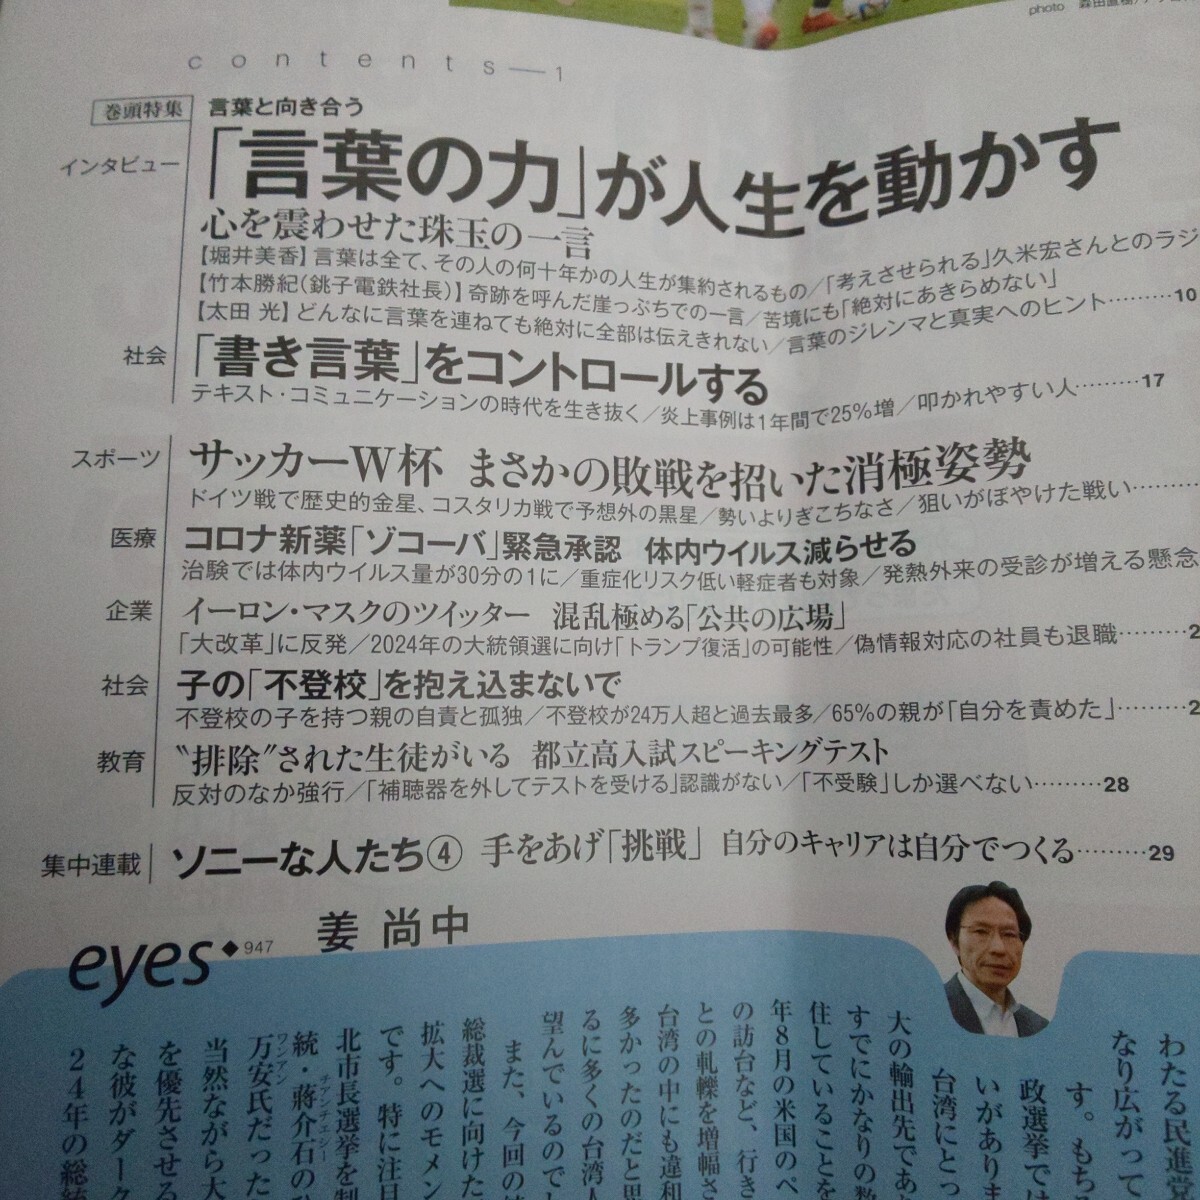 photo
contents—1
巻頭特集 言葉と向き合う
インタビュー 「言葉の力」が人生を動かす
心を震わせた珠玉の一言
【堀井美香】言葉は全て、その人の何十年かの人生が集約されるもの/「考えさせられる」久米宏さんとのラジ
【竹本勝紀(銚子電鉄社長)】奇跡を呼んだ崖っぷちでの一言/苦境にも「絶対にあきらめない」
【太田 光】どんなに言葉を連ねても絶対に全部は伝えきれない/言葉のジレンマと真実へのヒント………10
社会 「書き言葉」をコントロールする
テキスト・コミュニケーションの時代を生き抜く/炎上事例は1年間で25%増/叩かれやすい人………17
スポーツ サッカーW杯 まさかの敗戦を招いた消極姿勢
ドイツ戦で歴史的金星、コスタリカ戦で予想外の黒星/勢いよりぎこちなさ/狙いがぼやけた戦い………
医療 コロナ新薬「ゾコーバ」緊急承認 体内ウイルス減らせる
治験では体内ウイルス量が30分の1に/重症化リスク低い軽症者も対象/発熱外来の受診が増える懸念
企業 イーロン・マスクのツイッター 混乱極める「公共の広場」
「大改革」に反発/2024年の大統領選に向け「トランプ復活」の可能性/偽情報対応の社員も退職………2
社会 子の「不登校」を抱え込まないで
不登校の子を持つ親の自責と孤独/不登校が24万人超と過去最多/65%の親が「自分を責めた」………2
教育 〝排除〟された生徒がいる 都立高入試スピーキングテスト
反対のなか強行/「補聴器を外してテストを受ける」認識がない/「不受験」しか選べない………28
集中連載 ソニーな人たち④ 手をあげ「挑戦」 自分のキャリアは自分でつくる………29
eyes◆947 姜 尚中
わたる民進党
なり広がって
す。もち
政選挙で
いがありま
台湾にとっ
大の輸出先であ
すでにかなりの数
住していることを
年8月の米国のペ
の訪台など、行き
との軋轢を増幅さ
台湾の中にも違和
多かったのだと思
るに多くの台湾人
望んでいるのでし
また、今回の
総裁選に向けた
拡大へのモメン
です。特に注目
北市長選挙を制
統・蔣介石のひ
万安氏だった
当然ながら大
を優先させる
な彼がダーク
24年の総統